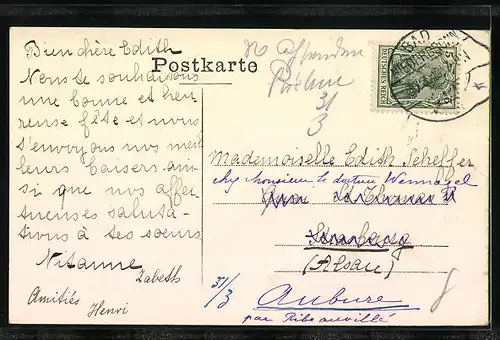 Bien chère Edith
Nous te souhaitons
une bonne et heu
reuse fête et nous
t'envoyons nos meil
leurs baisers ain-
si que nos affec-
tueuses saluta-
tions à tes sœurs
Nisanne
Zabeth
Amitiés Henri
Postkarte
31
3
DEUTSCHES REICH
BAD
Mademoiselle Edith Scheffer
chez Monsieur le docteur
St Thomas
Strasbourg
(Alsace)
31/3
Aubure
par Ribeauvillé